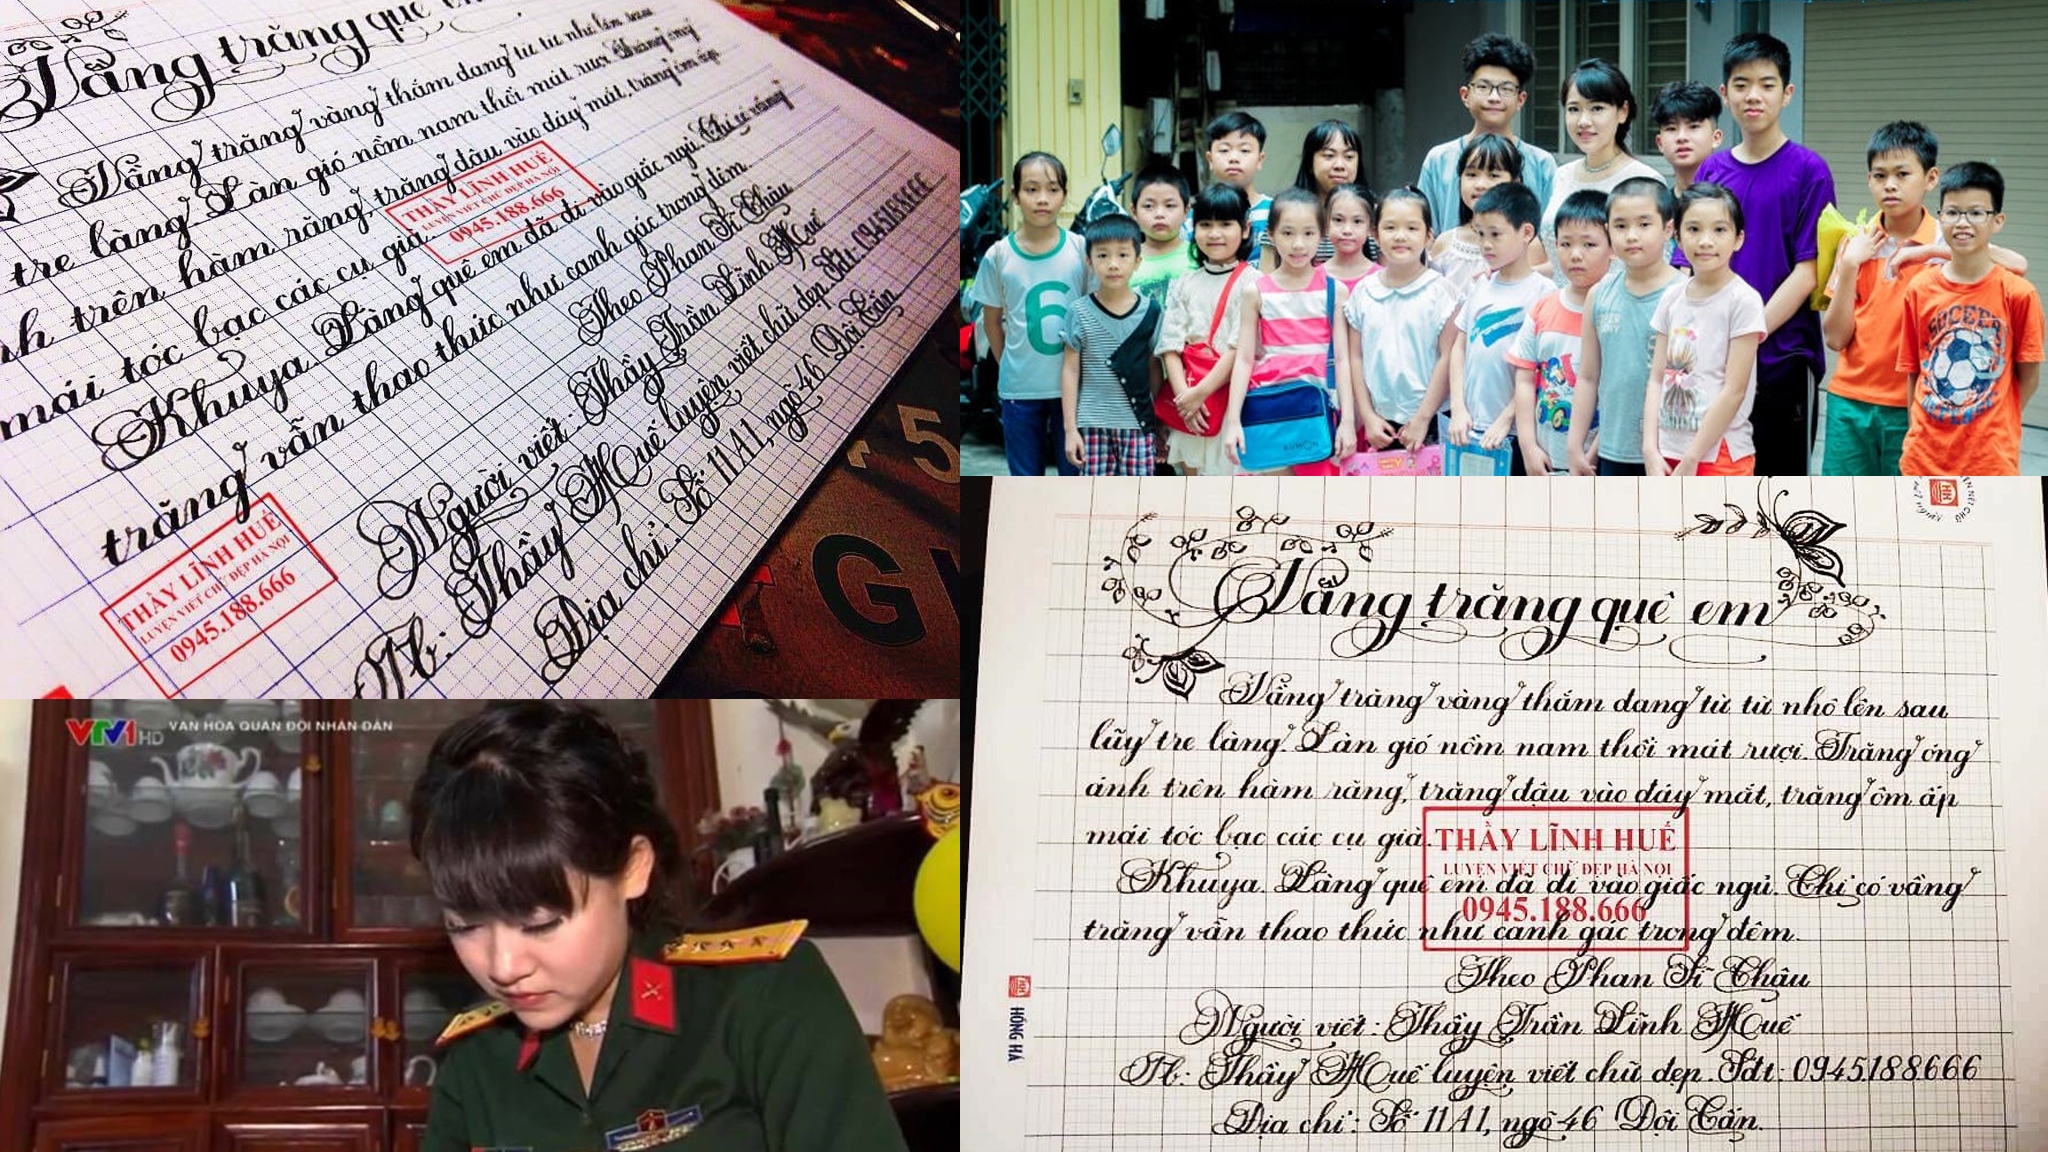 Vầng trăng quê em
Vầng trăng vàng thắm đang từ từ nhô lên sau
tre làng. Làn gió nồm nam thổi mát rượi. Trăng óng
ánh trên hàm răng, trăng đậu vào đáy mắt, trăng ôm ấp
mái tóc bạc các cụ già.
Khuya. Làng quê em đã đi vào giấc ngủ. Chỉ có vầng
trăng vẫn thao thức như canh gác trong đêm.
Theo Phan Sĩ Châu
Người viết: Thầy Trần Lĩnh Huế
Fb: Thầy Huế luyện viết chữ đẹp. Sđt: 0945188666
Địa chỉ: Số 11A1, ngõ 46 Đội Cấn
THẦY LĨNH HUẾ
LUYỆN VIẾT CHỮ ĐẸP HÀ NỘI
0945.188.666
THẦY LĨNH HUẾ
LUYỆN VIẾT CHỮ ĐẸP HÀ NỘI
0945.188.666
5
G
6
KUMON
SOCCER
VTV1 HD
VĂN HÓA QUÂN ĐỘI NHÂN DÂN
Vầng trăng quê em
Vầng trăng vàng thắm đang từ từ nhô lên sau
lũy tre làng. Làn gió nồm nam thổi mát rượi. Trăng óng
ánh trên hàm răng, trăng đậu vào đáy mắt, trăng ôm ấp
mái tóc bạc các cụ già.
Khuya. Làng quê em đã đi vào giấc ngủ. Chỉ có vầng
trăng vẫn thao thức như canh gác trong đêm.
Theo Phan Sĩ Châu
Người viết: Thầy Trần Lĩnh Huế
Fb: Thầy Huế luyện viết chữ đẹp. Sđt: 0945188666
Địa chỉ: Số 11A1, ngõ 46 Đội Cấn.
THẦY LĨNH HUẾ
LUYỆN VIẾT CHỮ ĐẸP HÀ NỘI
0945.188.666
HỒNG HÀ